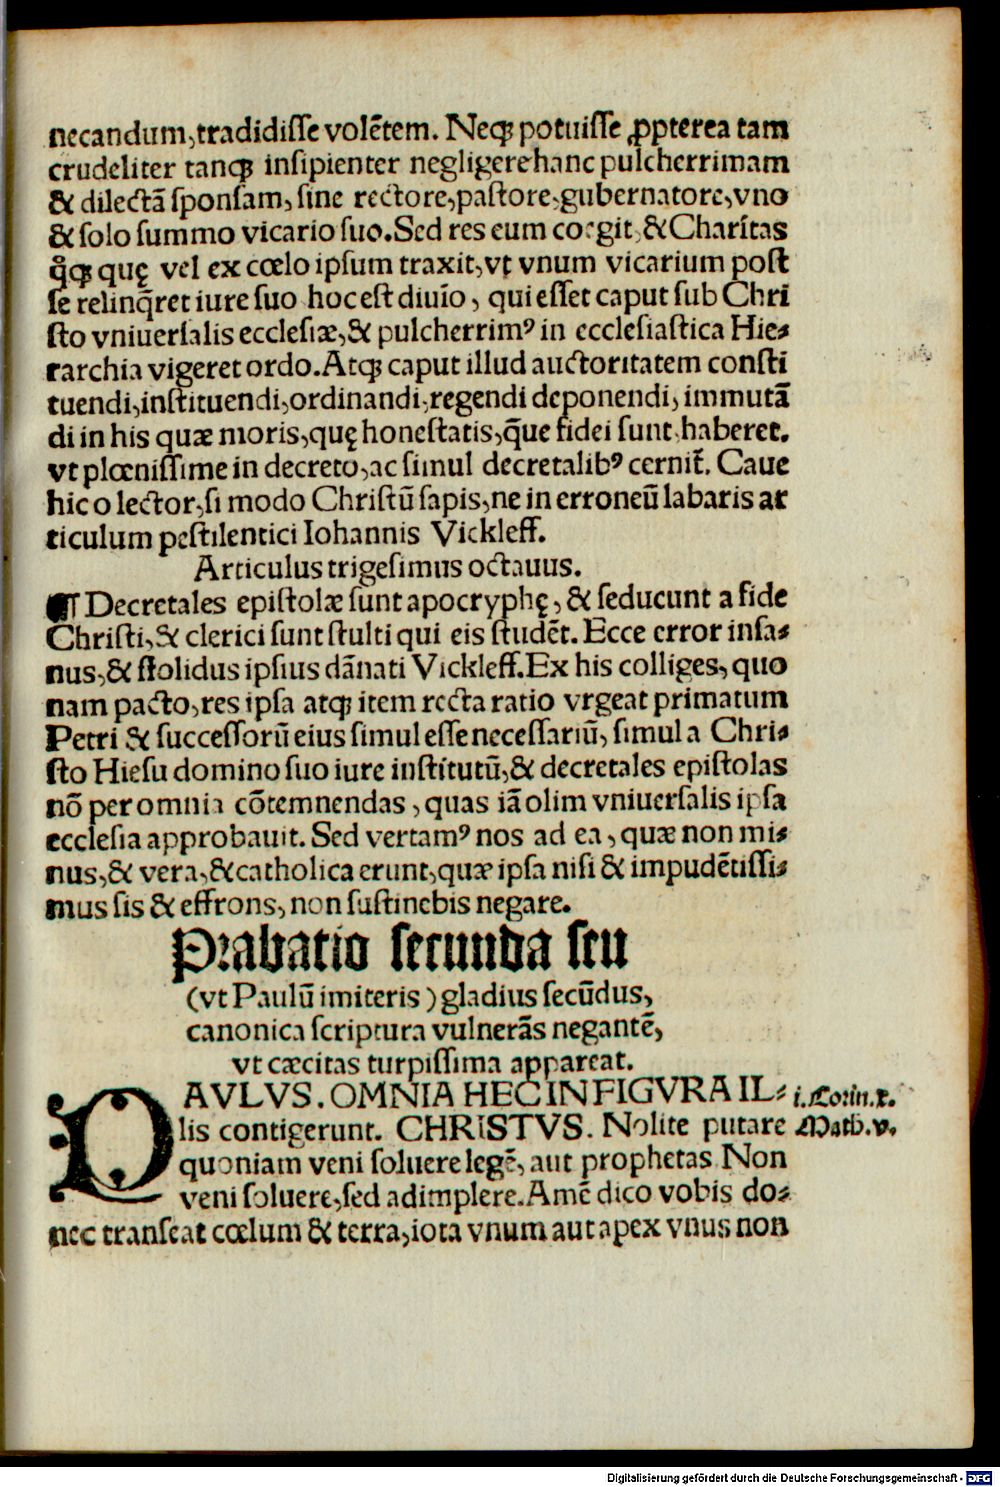 necandum,tradidiſſe volētem. Neqꝫ potuiſſe ꝓpterea tam
crudeliter tanqꝫ inſipienter negligere hanc pulcherrimam
& dilectā ſponſam, ſine rectore,paſtore,gubernatore,vno
& ſolo ſummo vicario ſuo.Sed res eum coegit,&Charitas
q̄qꝫ quę vel ex cœlo ipſum traxit,vt vnum vicarium poſt
ſe relinq̄ret iure ſuo hoc eſt diuīo, qui eſſet caput ſub Chri
ſto vniuerſalis eccleſiæ,& pulcherrimꝰ in eccleſiaſtica Hie⸗
rarchia vigeret ordo.Atqꝫ caput illud auctoritatem conſti
tuendi,inſtituendi,ordinandi,regendi deponendi, immutā
di in his quæ moris,quę honeſtatis,q̄ue fidei ſunt,haberet.
vt plœniſſime in decreto,ac ſimul decretalibꝰ cernit̄. Caue
hic o lector,ſi modo Chriſtū ſapis,ne in erroneū labaris ar
ticulum peſtilentici Iohannis Vickleff.
Articulus trigeſimus octauus.
¶ Decretales epiſtolæ ſunt apocryphę, & ſeducunt a fide
Chriſti,& clerici ſunt ſtulti qui eis ſtudēt. Ecce error inſa⸗
nus,& ſtolidus ipſius dānati Vickleff.Ex his colliges, quo
nam pacto,res ipſa atqꝫ item recta ratio vrgeat primatum
Petri & ſucceſſorū eius ſimul eſſe neceſſariū, ſimul a Chri⸗
ſto Hieſu domino ſuo iure inſtitutū,& decretales epiſtolas
nō per omnia cōtemnendas, quas iā olim vniuerſalis ipſa
eccleſia approbauit. Sed vertamꝰ nos ad ea, quæ non mi⸗
nus,& vera,&catholica erunt,quæ ipſa niſi & impudētiſſi⸗
mus ſis & effrons, non ſuſtinebis negare.
Prabatio ſecunda ſeu
(vt Paulū imiteris) gladius ſecūdus,
canonica ſcriptura vulnerās negantē,
vt cæcitas turpiſſima appareat.
PAVLVS. OMNIA HEC IN FIGVRA IL⸗ i.Corin.x.
lis contigerunt. CHRISTVS. Nolite putare Math.v.
quoniam veni ſoluere legē, aut prophetas Non
veni ſoluere,ſed adimplere.Amē dico vobis do⸗
nec tranſeat cœlum & terra,iota vnum aut apex vnus non
Digitalisierung gefördert durch die Deutsche Forschungsgemeinschaft - DFG